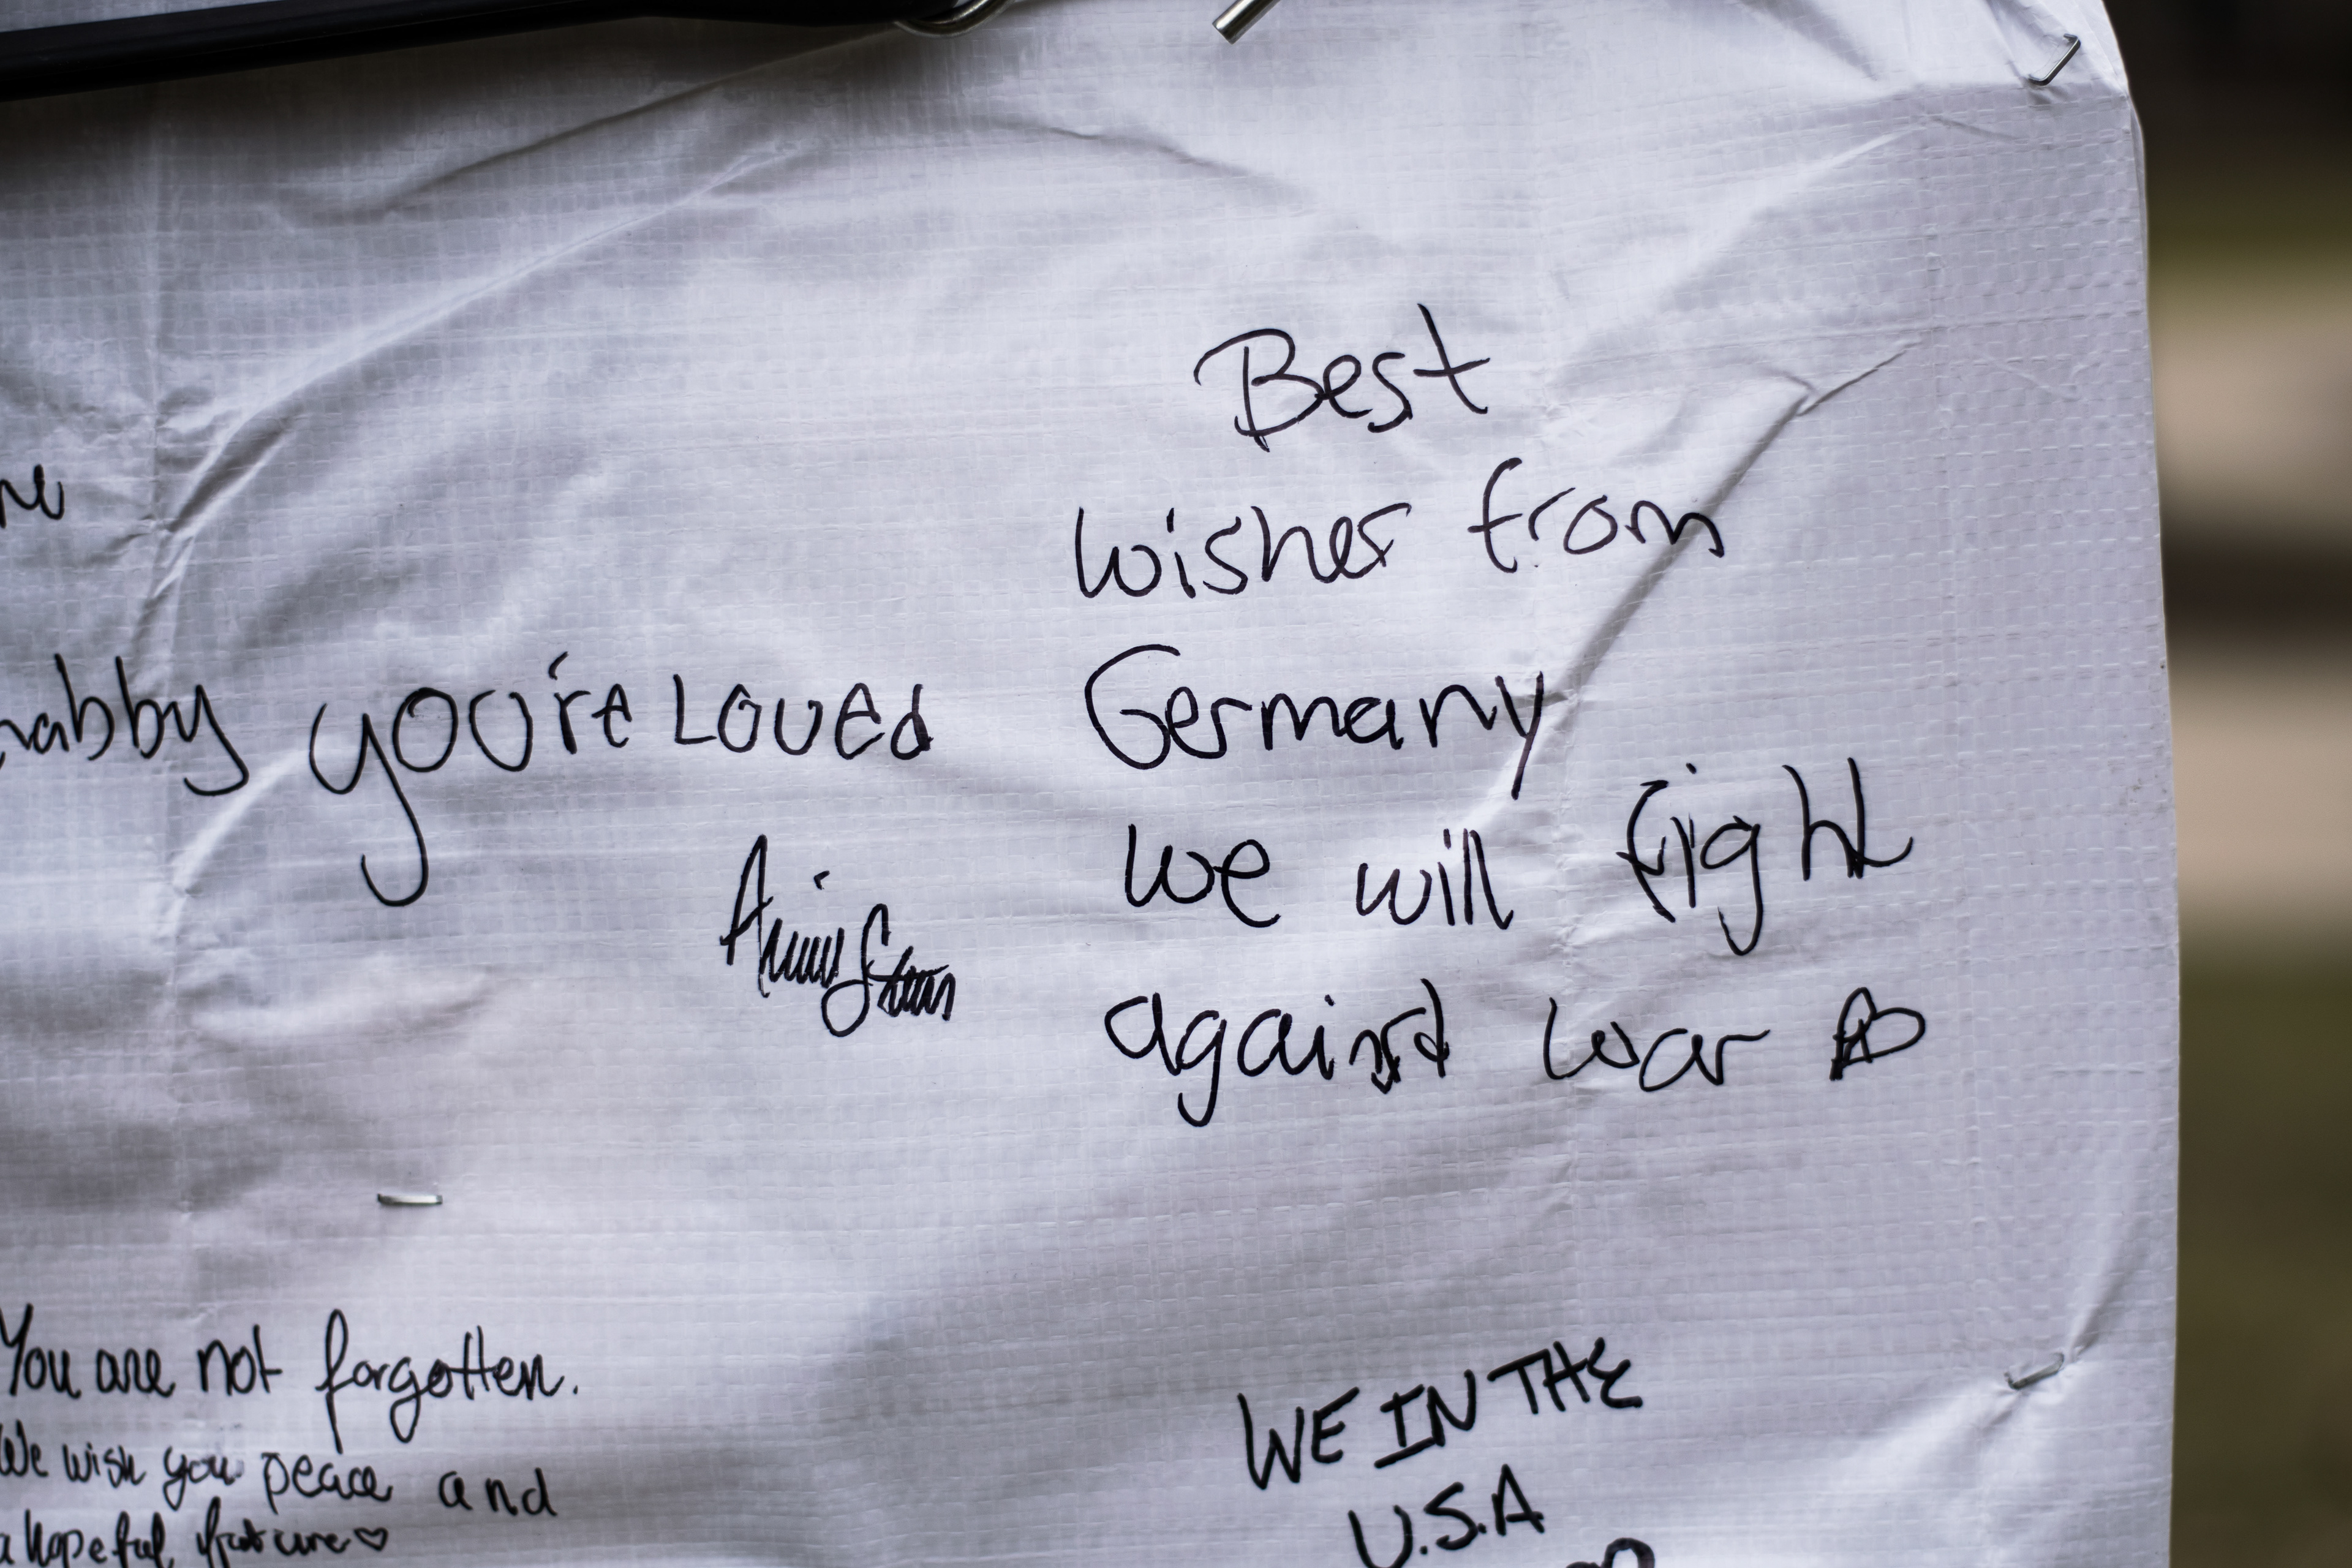 you're Loved
Best
wishes from
Germany
we will fight
against war
You are not forgotten.
We wish you peace and
a hopeful future
WE IN THE
U.S.A